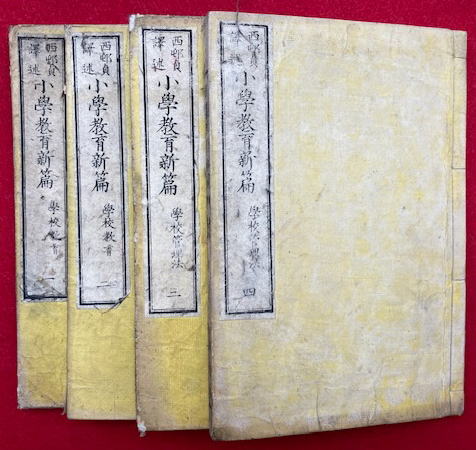 西邨貞
譯述
小學教育新篇
學校教育
一
西邨貞
譯述
小學教育新篇
學校教育
二
西邨貞
譯述
小學教育新篇
學校管理法
三
西邨貞
譯述
小學教育新篇
學校管理法
四